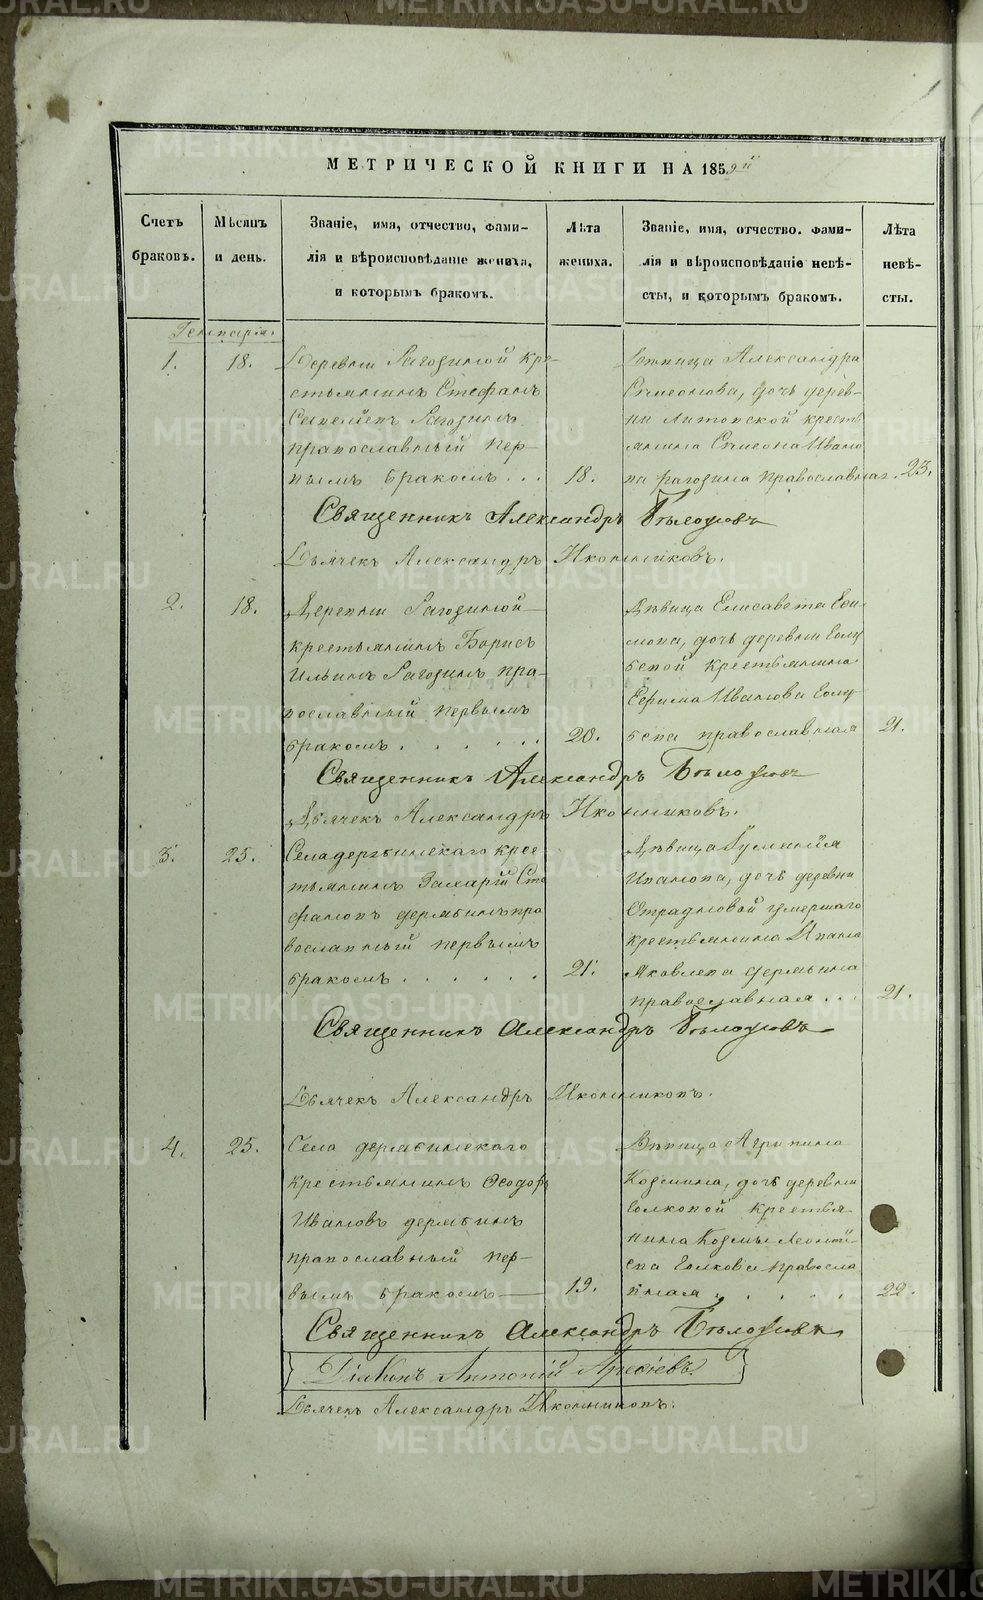 МЕТРИЧЕСКОЙ КНИГИ НА 1859й
Счетъ браковъ.
Мѣсяцъ и день.
Званіе, имя, отчество, фами-
лія и вѣроисповѣданіе жениха,
и которымъ бракомъ.
Лѣта жениха.
Званіе, имя, отчество. фами-
лія и вѣроисповѣданіе невѣ-
сты, и которымъ бракомъ.
Лѣта невѣ-
сты.
Генваря.
1. 18.
Деревни Рагозиной кре-
стьянинъ Стефанъ
Рагозинъ
православный пер-
вымъ бракомъ . . . 18.
Дѣвица Александра
Симеонова, дочь дерев-
ни крестья
нина Симеона Ивано
ва Рагозина православная. 23.
Священникъ Александръ
Дьячекъ Александръ Иконниковъ.
2. 18.
Деревни Рагозиной
крестьянинъ Борисъ
Ильинъ Рагозинъ пра-
вославный первымъ
бракомъ . . . . . . 20.
Дѣвица Елисавета Ефи-
мова, дочь деревни Голу
бевой крестьянина
Ефима Иванова Голу
бева православная 21.
Священникъ Александръ
Дьячекъ Александръ Иконниковъ.
3. 25.
Села дермбинскаго крес
тьянинъ Захарій Сте
фановъ дермбинъ пра
вославный первымъ
бракомъ . . . . . . 21.
Дѣвица
Иванова, дочь деревни
Отрадновой умершаго
крестьянина Ивана
Яковлева дермбина
православная . . . 21.
Священникъ Александръ
Дьячекъ Александръ Иконниковъ.
4. 25.
Села дермбинскаго
крестьянинъ Ѳеодоръ
Ивановъ дермбинъ
православный пер-
вымъ бракомъ — 19.
Дѣвица Агрипина
Козмина, дочь деревни
Волковой крестья
нина Козмы Леонтіе-
ва Волкова правосла
вная . . . . . 22.
Священникъ Александръ
Діаконъ Антоній
Дьячекъ Александръ Иконниковъ.
METRIKI.GASO-URAL.RU